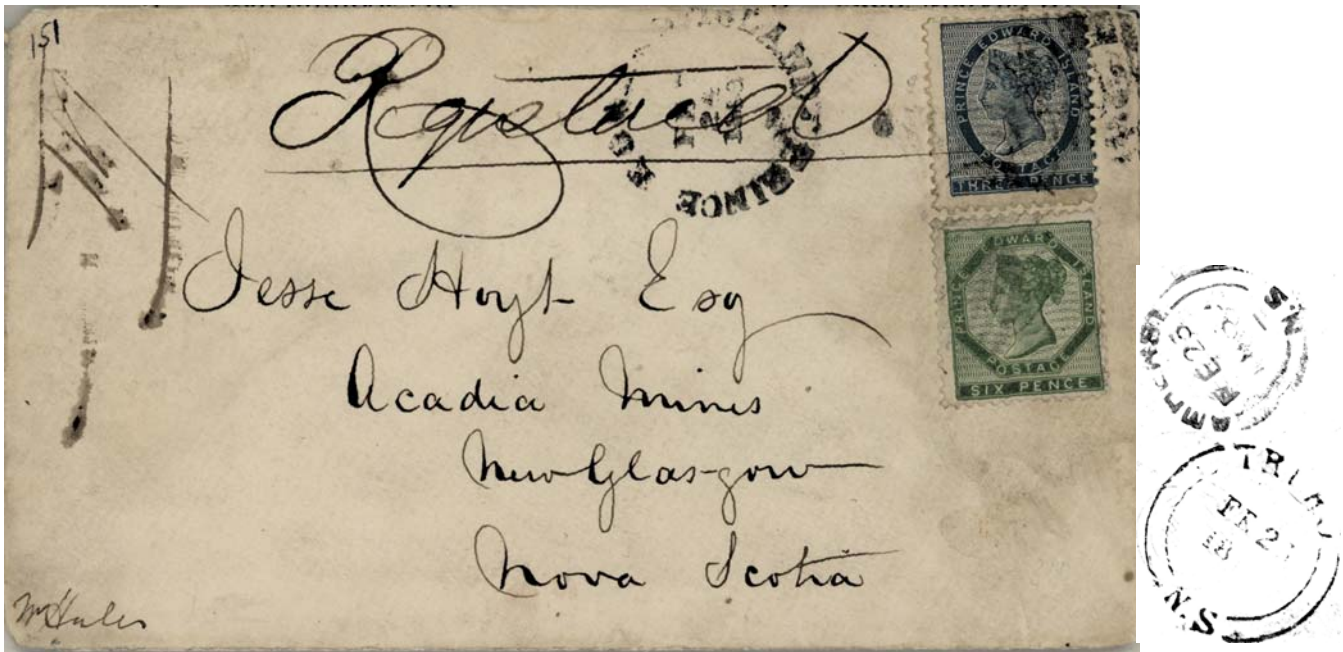 151
Registered.
PRINCE EDWARD ISLAND
POSTAGE
THREE PENCE
PRINCE EDWARD ISLAND
POSTAGE
SIX PENCE
PRINCE
Jesse Hoyt Esq
Acadia Mines
New Glasgow
Nova Scotia
N.S
FE 23
TRURO
FE 2
18
N.S